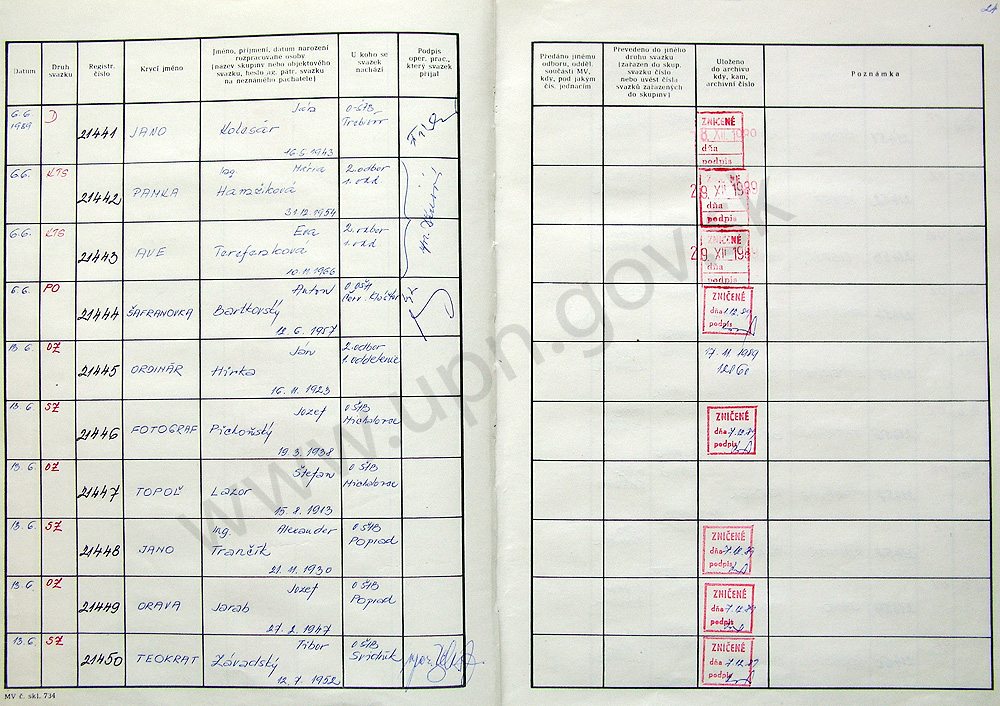 21
Datum
Druh svazku
Registr. číslo
Krycí jméno
Jméno, příjmení, datum narození rozpracované osoby
[název skupiny nebo objektového svazku, heslo ag. pátr. svazku na neznámého pachatele]
U koho se svazek nachází
Podpis oper. prac., který svazek přijal
Předáno jinému odboru, odděl. součásti MV, kdy, pod jakým čís. jednacím
Převedeno do jiného druhu svazku [zařazen do skup. svazku číslo nebo uvést čísla svazků zařazených do skupiny]
Uloženo do archivu kdy, kam, archivní číslo
Poznámka
6.6. 1989 D 21441 JANO Ján Kolesár 16.5.1943 O ŠtB Trebišov
ZNIČENÉ 8. XII. 1990 dňa podpis
6.6. KTS 21442 Ing. Mária Hamžíková 31.12.1954 2. odbor 1. odd
29. XII. 1989 dňa podpis
6.6. KTS 21443 AVE Eva 10.11.1966 2. odbor 1. odd
ZNIČENÉ 29. XII. 198 dňa podpis
6.6. PO 21444 ŠAFRANOVKA Anton Bartkovský 12.6.1957
ZNIČENÉ dňa podpis
13.6. OZ 21445 ORDINÁR Ján Hirka 16.11.1923 2. odbor 1. oddelenie
17.11.1989
13.6. SZ 21446 FOTOGRAF Jozef Pichonský 19.3.1938 O ŠtB Michalovce
ZNIČENÉ dňa 7.12.89 podpis
13.6. OZ 21447 TOPOĽ Štefan Lazor 15.8.1913 O ŠtB Michalovce
13.6. SZ 21448 JANO Ing. Alexander Trančík 21.11.1930 O ŠtB Poprad
ZNIČENÉ dňa 7.12.89 podpis
13.6. OZ 21449 ORAVA Jozef Jarab 27.2.1947 O ŠtB Poprad
ZNIČENÉ dňa 7.12.89 podpis
13.6. SZ 21450 TEOKRAT Tibor Závadský 12.7.1952 O ŠtB Svidník
ZNIČENÉ dňa 7.12.89 podpis
MV č. skl. 734
www.upn.gov.sk